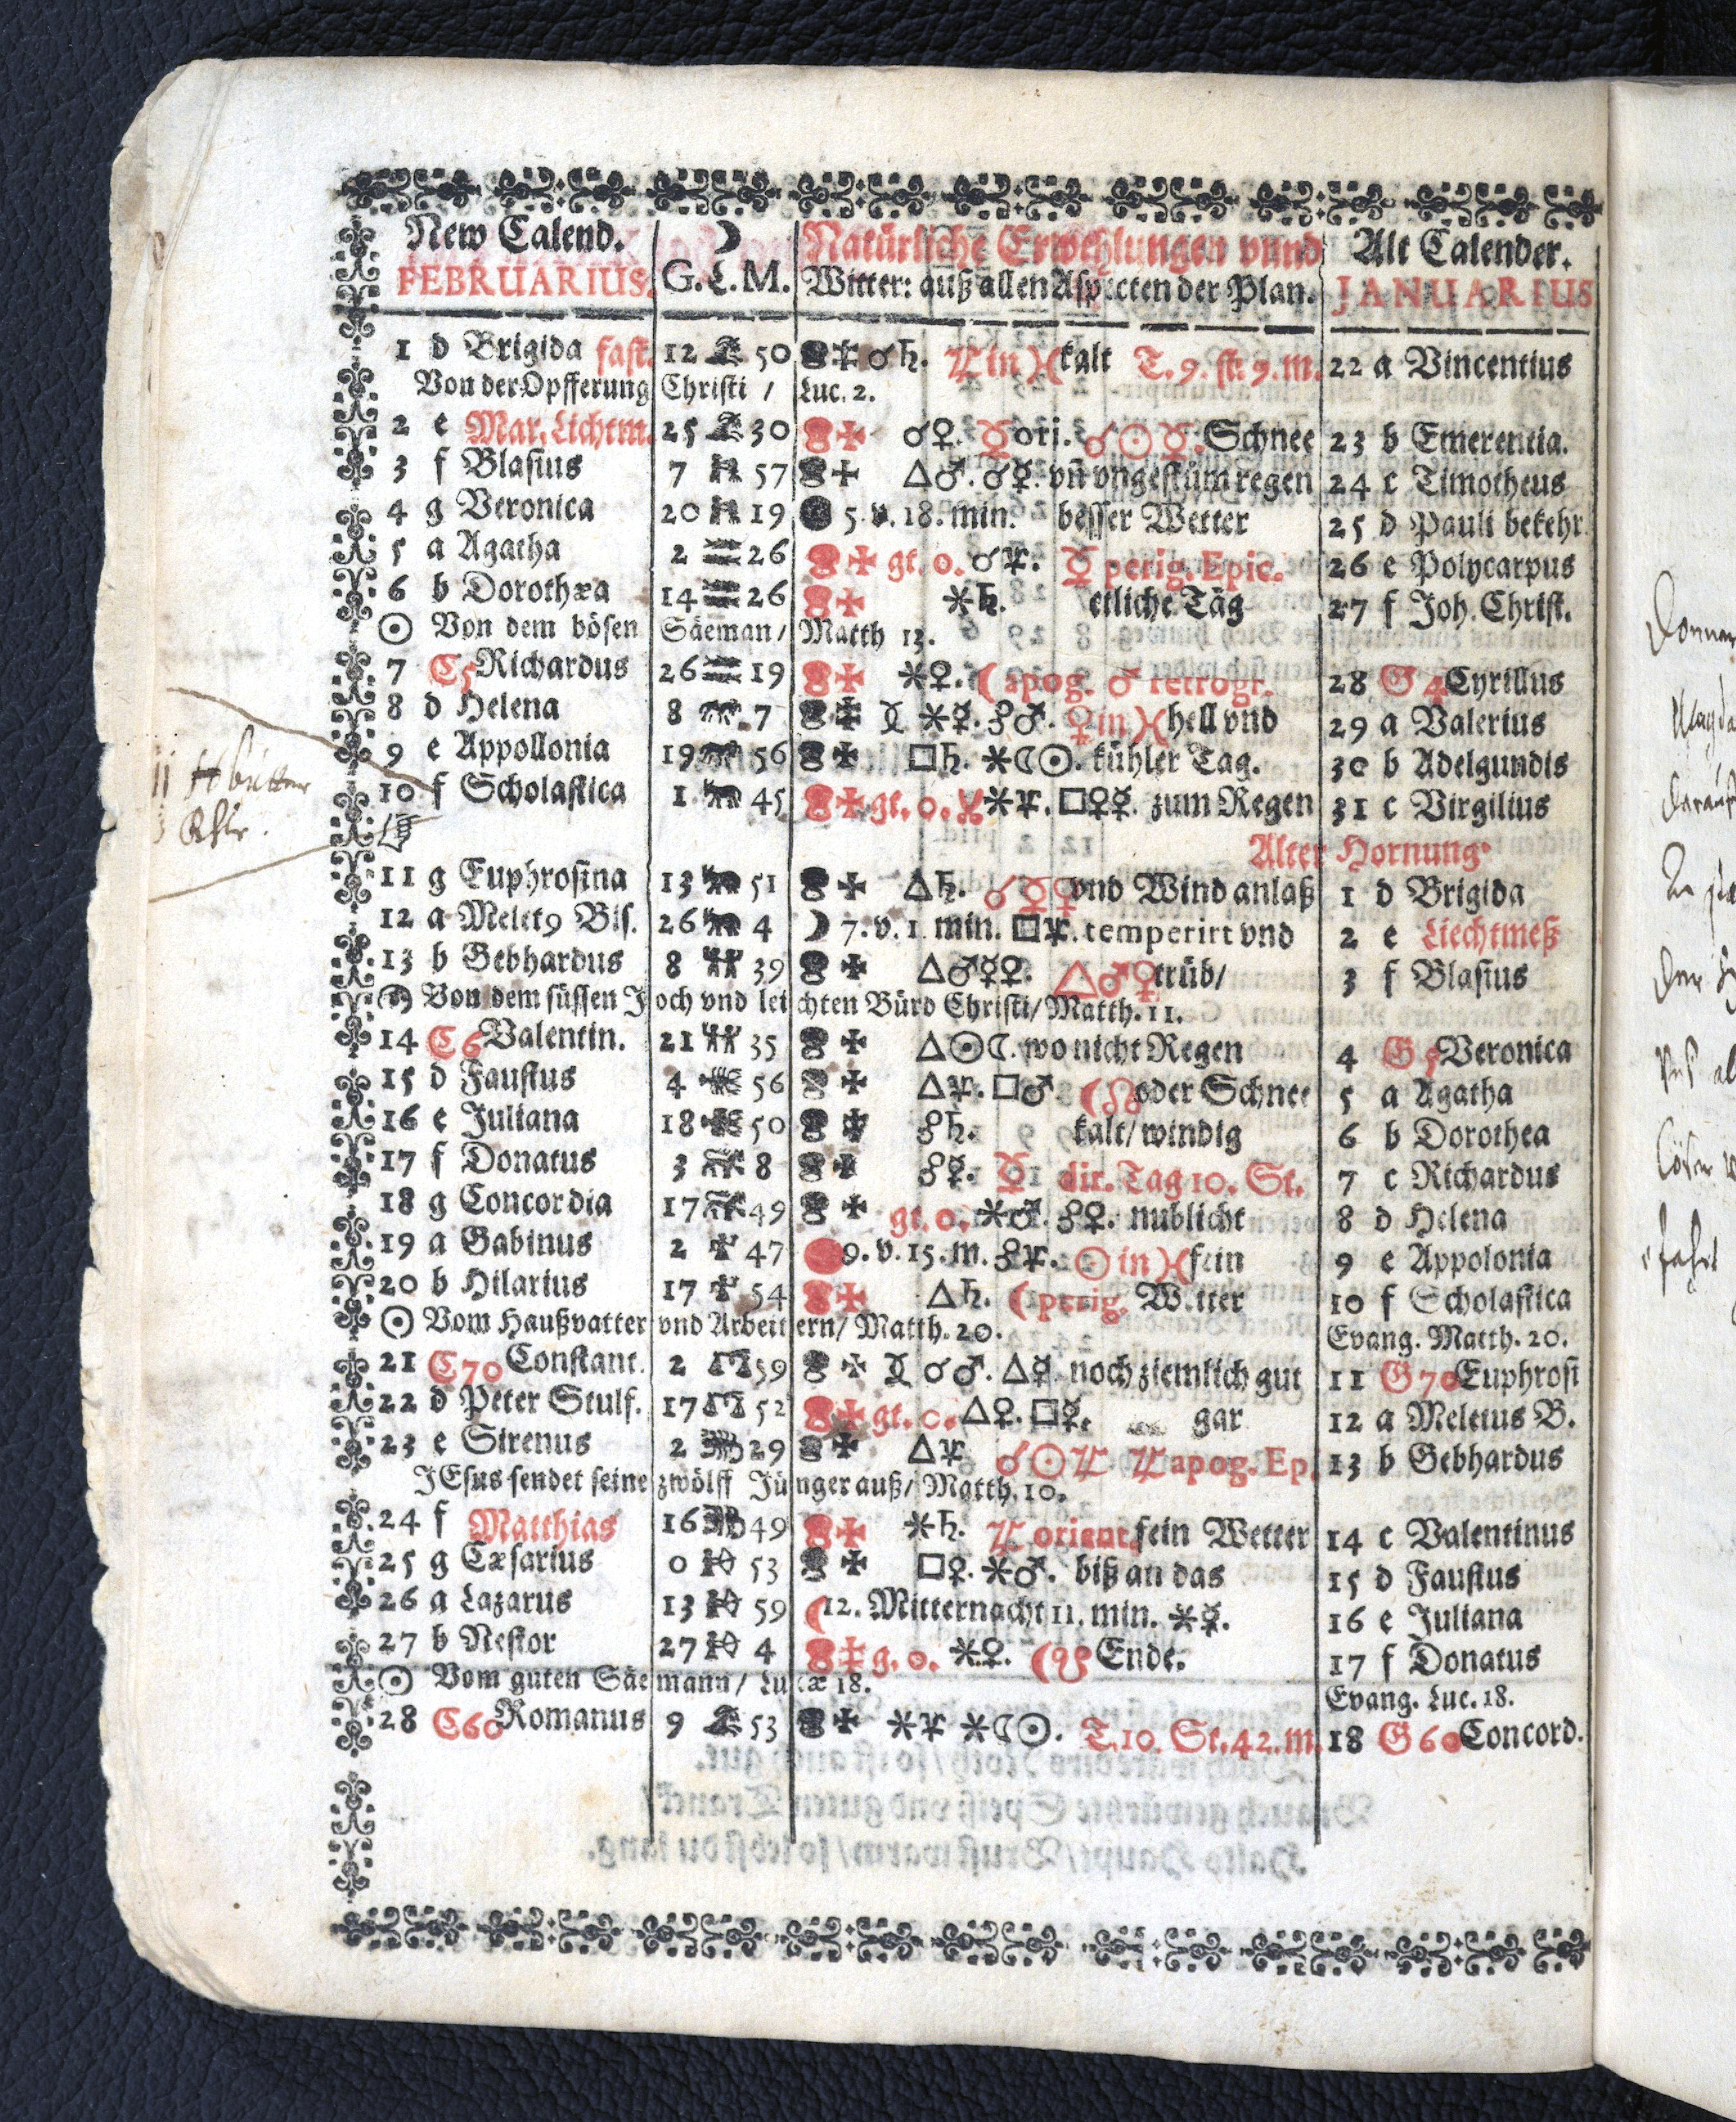 New Calend. ☽ Natürliche Erwehlungen vnnd Alt Calender.
FEBRUARIUS. G. L. M. Witter: auß allen Aspecten der Plan. JANUARIUS
1 d Brigida fast. 12 50 ☌♄. ♃ in ♓ kalt T. 9. st. 9. m. 22 a Vincentius
Von der Opfferung Christi / Luc. 2.
2 e Mar. Lichtm. 25 30 ☌♀. ☿ ori. ☌☉☿. Schnee 23 b Emerentia.
3 f Blasius 7 57 △♂. ☌☿. vñ vngestüm regen 24 c Timotheus
4 g Veronica 20 19 ● 5. v. 18. min. besser Wetter 25 d Pauli bekehr.
5 a Agatha 2 ♒ 26 gt. o. ☌♃. ☿ perig. Epic. 26 e Polycarpus
6 b Dorothæa 14 ♒ 26 ⚹♄. etliche Täg 27 f Joh. Christ.
☉ Von dem bösen Säeman / Matth 13.
7 C 5 Richardus 26 ♒ 19 ⚹♀. ☾ apog. ♂ retrogr. 28 G 4 Cyrillus
8 d Helena 8 7 ⚹☿. ☍♂. ♀ in ♓ hell vnd 29 a Valerius
9 e Appollonia 19 56 □♄. ⚹☾☉. kühler Tag. 30 b Adelgundis
10 f Scholastica 1 45 gt. o. ⚹♃. □♀☿. zum Regen 31 c Virgilius
☞
Alter Hornung.
11 g Euphrosina 13 51 △♄. ☌☿♀ vnd Wind anlaß 1 d Brigida
12 a Melet9 Bis. 26 4 ☽ 7. v. 1. min. □♃. temperirt vnd 2 e Liechtmeß
13 b Gebhardus 8 39 △♂☿♀. △♂♀ trüb / 3 f Blasius
☉ Von dem süssen Joch vnd leichten Bürd Christi / Matth. 11.
14 C 6 Valentin. 21 35 △☉☾. wo nicht Regen 4 G 5 Veronica
15 d Faustus 4 56 △♃. □♂ ☾☊ oder Schnee 5 a Agatha
16 e Juliana 18 50 ☍♄. kalt / windig 6 b Dorothea
17 f Donatus 3 8 ☍☿. ☿ dir. Tag 10. St. 7 c Richardus
18 g Concordia 17 49 gt. o. ⚹♂. ☍♀. nublicht 8 d Helena
19 a Gabinus 2 47 9. v. 15. m. ☍♃. ☉ in ♓ fein 9 e Appolonia
20 b Hilarius 17 54 △♄. ☾ perig. Wetter 10 f Scholastica
☉ Vom Haußvatter vnd Arbeitern / Matth. 20. Evang. Matth. 20.
21 C 70 Constant. 2 59 ☌♂. △☿ noch ziemlich gut 11 G 70 Euphrosi
22 d Peter Stulf. 17 52 gt. o. △♀. □☿. gar 12 a Meletus B.
23 e Sirenus 2 29 △♃ ☌☉♃ ♃ apog. Ep. 13 b Gebhardus
JEsus sendet seine zwölff Jünger auß / Matth. 10.
24 f Matthias 16 49 ⚹♄. ♃ orient. fein Wetter 14 c Valentinus
25 g Cæsarius 0 53 □♀. ⚹♂. biß an das 15 d Faustus
26 a Lazarus 13 59 ☾ 12. Mitternacht 11. min. ⚹☿. 16 e Juliana
27 b Nestor 27 4 g. o. ⚹♀. ☾☋ Ende. 17 f Donatus
☉ Vom guten Säemann / Lucæ 18. Evang. Luc. 18.
28 C 60 Romanus 9 53 ⚹♃ ⚹☾☉. T. 10. St. 42. m. 18 G 60 Concord.